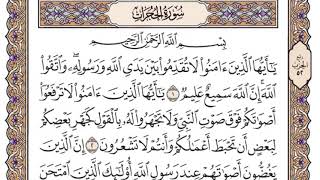 سُورَةُ الحُجُرَاتِ
بِسْمِ اللَّهِ الرَّحْمَٰنِ الرَّحِيمِ
يَٰٓأَيُّهَا الَّذِينَ ءَامَنُوا۟ لَا تُقَدِّمُوا۟ بَيْنَ يَدَىِ اللَّهِ وَرَسُولِهِۦ ۖ وَاتَّقُوا۟
اللَّهَ إِنَّ اللَّهَ سَمِيعٌ عَلِيمٌ ١ يَٰٓأَيُّهَا الَّذِينَ ءَامَنُوا۟ لَا تَرْفَعُوٓا۟
أَصْوَٰتَكُمْ فَوْقَ صَوْتِ النَّبِىِّ وَلَا تَجْهَرُوا۟ لَهُۥ بِالْقَوْلِ كَجَهْرِ بَعْضِكُمْ
لِبَعْضٍ أَن تَحْبَطَ أَعْمَٰلُكُمْ وَأَنتُمْ لَا تَشْعُرُونَ ٢ إِنَّ الَّذِينَ
يَغُضُّونَ أَصْوَٰتَهُمْ عِندَ رَسُولِ اللَّهِ أُو۟لَٰٓئِكَ الَّذِينَ امْتَحَنَ